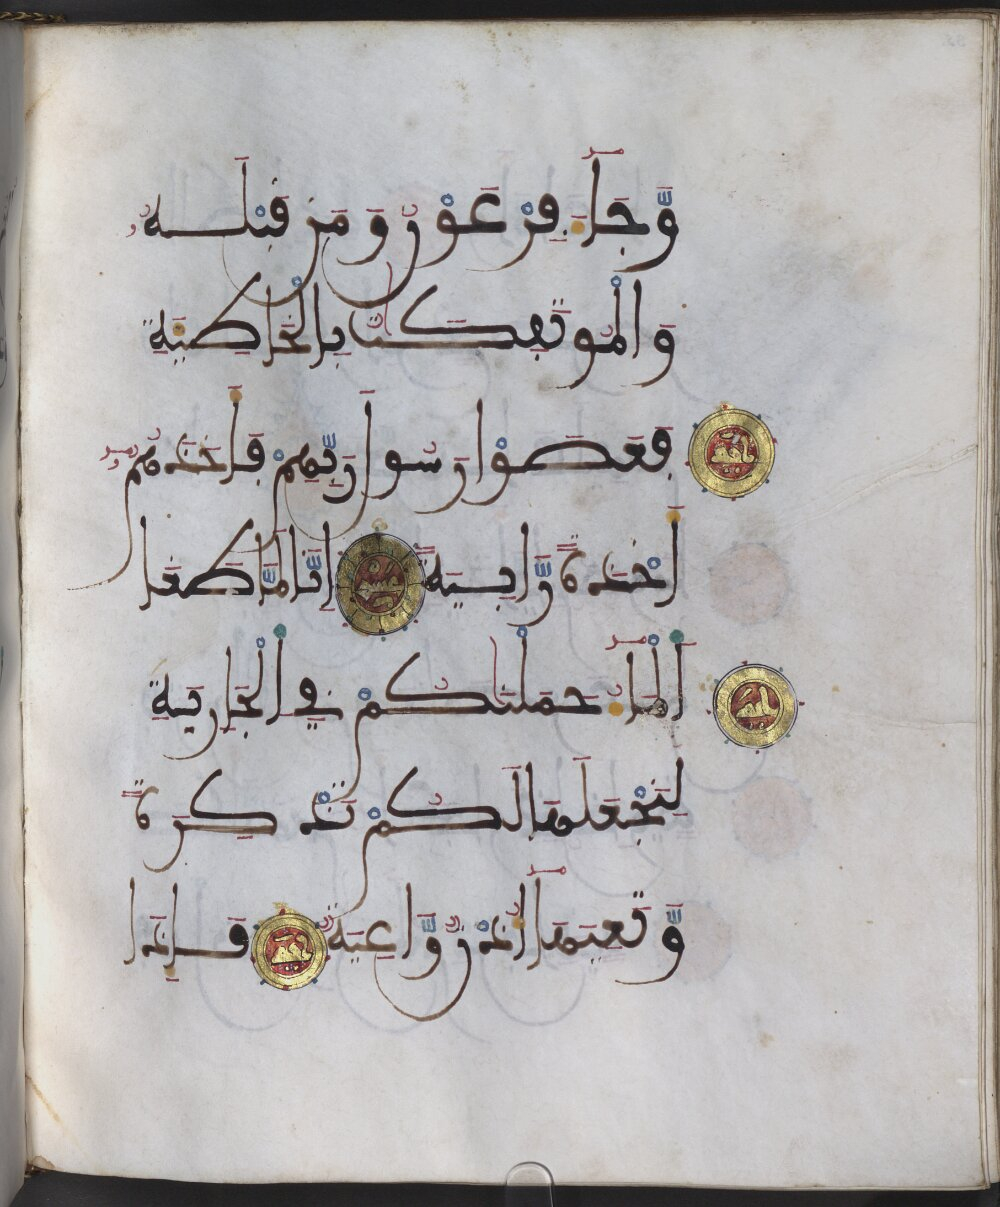 وَّجَآءَ فِرْعَوْنُ وَمَن قَبْلَهُ
وَالْمُوتَفِكَٰتُ بِالْخَاطِئَةِ
فَعَصَوْا رَسُولَ رَبِّهِمْ فَأَخَذَهُمُ
أَخْذَةً رَّابِيَةً اِنَّا لَمَّا طَغَا
اَلْمَآءُ حَمَلْنَٰكُمْ فِي الْجَارِيَةِ
لِنَجْعَلَهَا لَكُمْ تَذْكِرَةً
وَّتَعِيَهَآ أُذْنٌ وَّاعِيَةٌ فَإِذَا